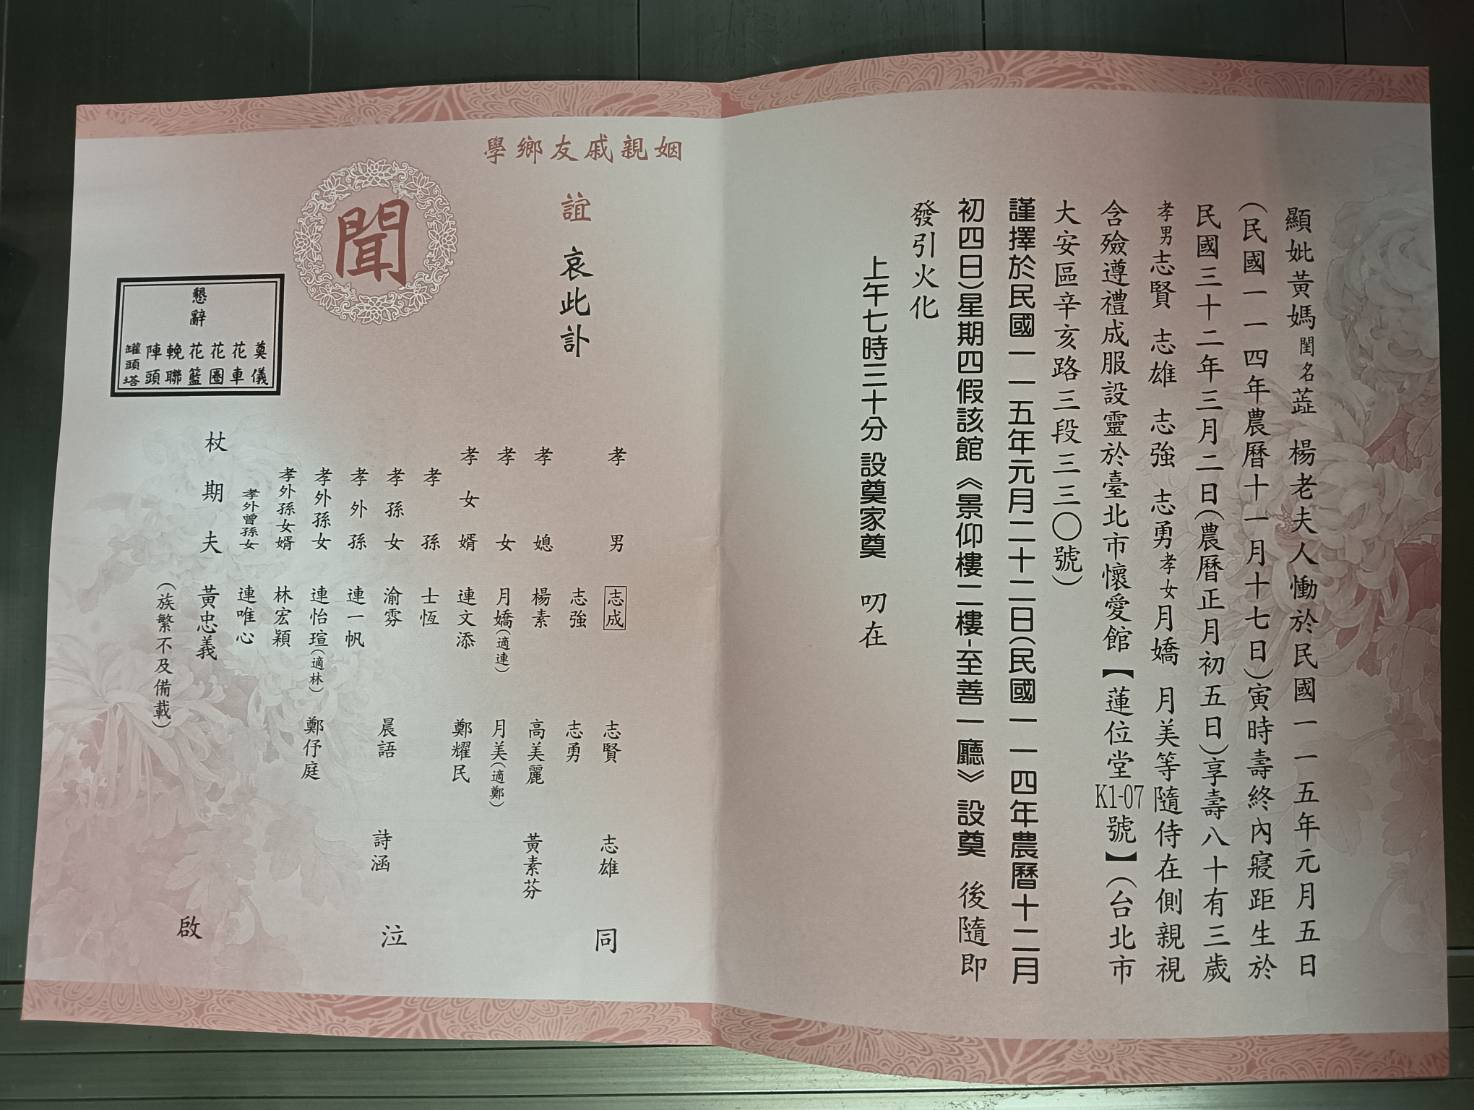 顯妣黃媽閨名蕋 楊老夫人慟於民國一一五年元月五日
(民國一一四年農曆十一月十七日)寅時壽終內寢距生於
民國三十二年三月二日(農曆正月初五日)享壽八十有三歲
孝男志賢 志雄 志強 志勇孝女月嬌 月美等隨侍在側親視
含殮遵禮成服設靈於臺北市懷愛館【蓮位堂K1-07號】(台北市
大安區辛亥路三段三三〇號)
謹擇於民國一一五年元月二十二日(民國一一四年農曆十二月
初四日)星期四假該館《景仰樓二樓-至善一廳》設奠 後隨即
發引火化
上午七時三十分 設奠家奠 叨在
姻親戚友鄉學
誼 哀此訃
聞
懇辭
奠儀
花車
花圈
花籃
輓聯
陣頭
罐頭塔
孝男 志成 志賢 志雄 同
志強 志勇
孝媳 楊素 高美麗 黃素芬
孝女 月嬌(適連) 月美(適鄭)
孝女婿 連文添 鄭耀民
孝孫 士恆
孝孫女 渝雰 晨語 詩涵 泣
孝外孫 連一帆
孝外孫女 連怡瑄(適林) 鄭伃庭
孝外孫女婿 林宏穎
孝外曾孫女 連唯心
杖期夫 黃忠義 啟
(族繁不及備載)